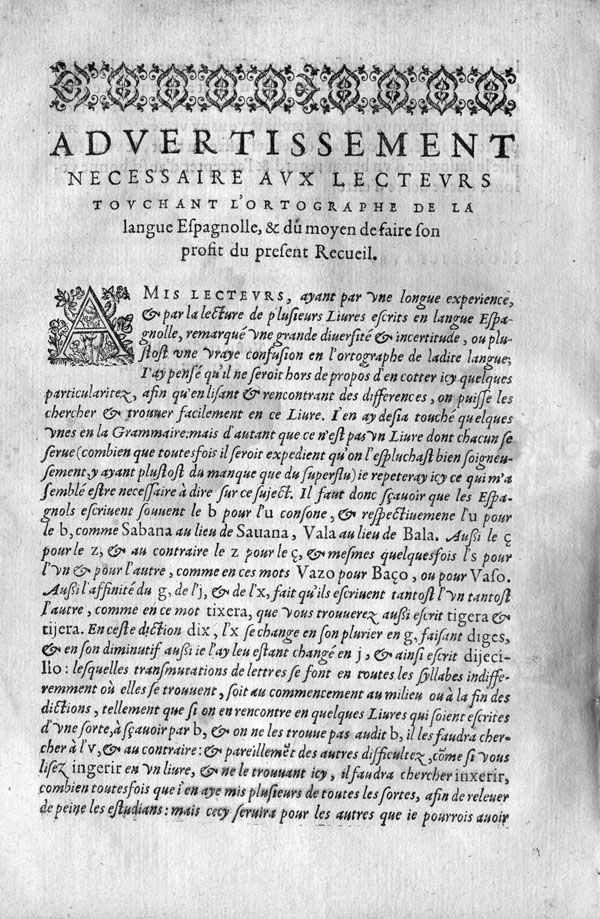 ADVERTISSEMENT
NECESSAIRE AVX LECTEVRS
TOVCHANT L'ORTOGRAPHE DE LA
langue Eſpagnolle, & dŭ moyen de faire ſon
profit du preſent Recueil.
AMIS LECTEVRS, ayant par vne longue experience,
& par la lecture de pluſieurs Liures eſcrits en langue Eſpa-
gnolle, remarqué vne grande diuerſité & incertitude, ou plu-
ſtoſt vne vraye confuſion en l'ortographe de ladite langue;
I'ay penſé qu'il ne ſeroit hors de propos d'en cotter icy quelques
particularitez, afin qu'en liſant & rencontrant des differences, on puiſſe les
chercher & trouuer facilement en ce Liure. I'en ay deſia touché quelques
vnes en la Grammaire: mais d'autant que ce n'eſt pas vn Liure dont chacun ſe
ſerue (combien que toutesfois il ſeroit expedient qu'on l'eſpluchaſt bien ſoigneu-
ſement, y ayant pluſtoſt du manque que du ſuperflu) ie repeteray icy ce qui m'a
ſemblé eſtre neceſſaire à dire ſur ce ſuject. Il faut donc ſçauoir que les Eſpa-
gnols eſcriuent ſouuent le b pour l'u conſone, & reſpectiuemene l'u pour
le b, comme Sabana au lieu de Sauana, Vala au lieu de Bala. Außi le ç
pour le z, & au contraire le z pour le ç, & meſmes quelquesfois l's pour
l'vn & pour l'autre, comme en ces mots Vazo pour Baço, ou pour Vaſo.
Außi l'affinité du g, de l'j, & de l'x, fait qu'ils eſcriuent tantoſt l'vn tantoſt
l'autre, comme en ce mot tixera, que vous trouuerez außi eſcrit tigera &
tijera. En ceſte diction dix, l'x ſe change en ſon plurier en g, faiſant diges,
& en ſon diminutif außi ie l'ay leu eſtant changé en j, & ainſi eſcrit dijeci-
lio: leſquelles tranſmutations de lettres ſe font en toutes les ſyllabes indiffe-
remment où elles ſe trouuent, ſoit au commencement au milieu ou à la fin des
dictions, tellement que ſi on en rencontre en quelques Liures qui ſoient eſcrites
d'vne ſorte, à ſçauoir par b, & on ne les trouue pas audit b, il les faudra cher-
cher à l'v, & au contraire: & pareillemẽt des autres difficultez, cõme ſi vous
liſez ingerir en vn liure, & ne le trouuant icy, il faudra chercher inxerir,
combien toutesfois que i'en aye mis pluſieurs de toutes les ſortes, afin de releuer
de peine les eſtudians: mais cecy ſeruira pour les autres que ie pourrois auoir